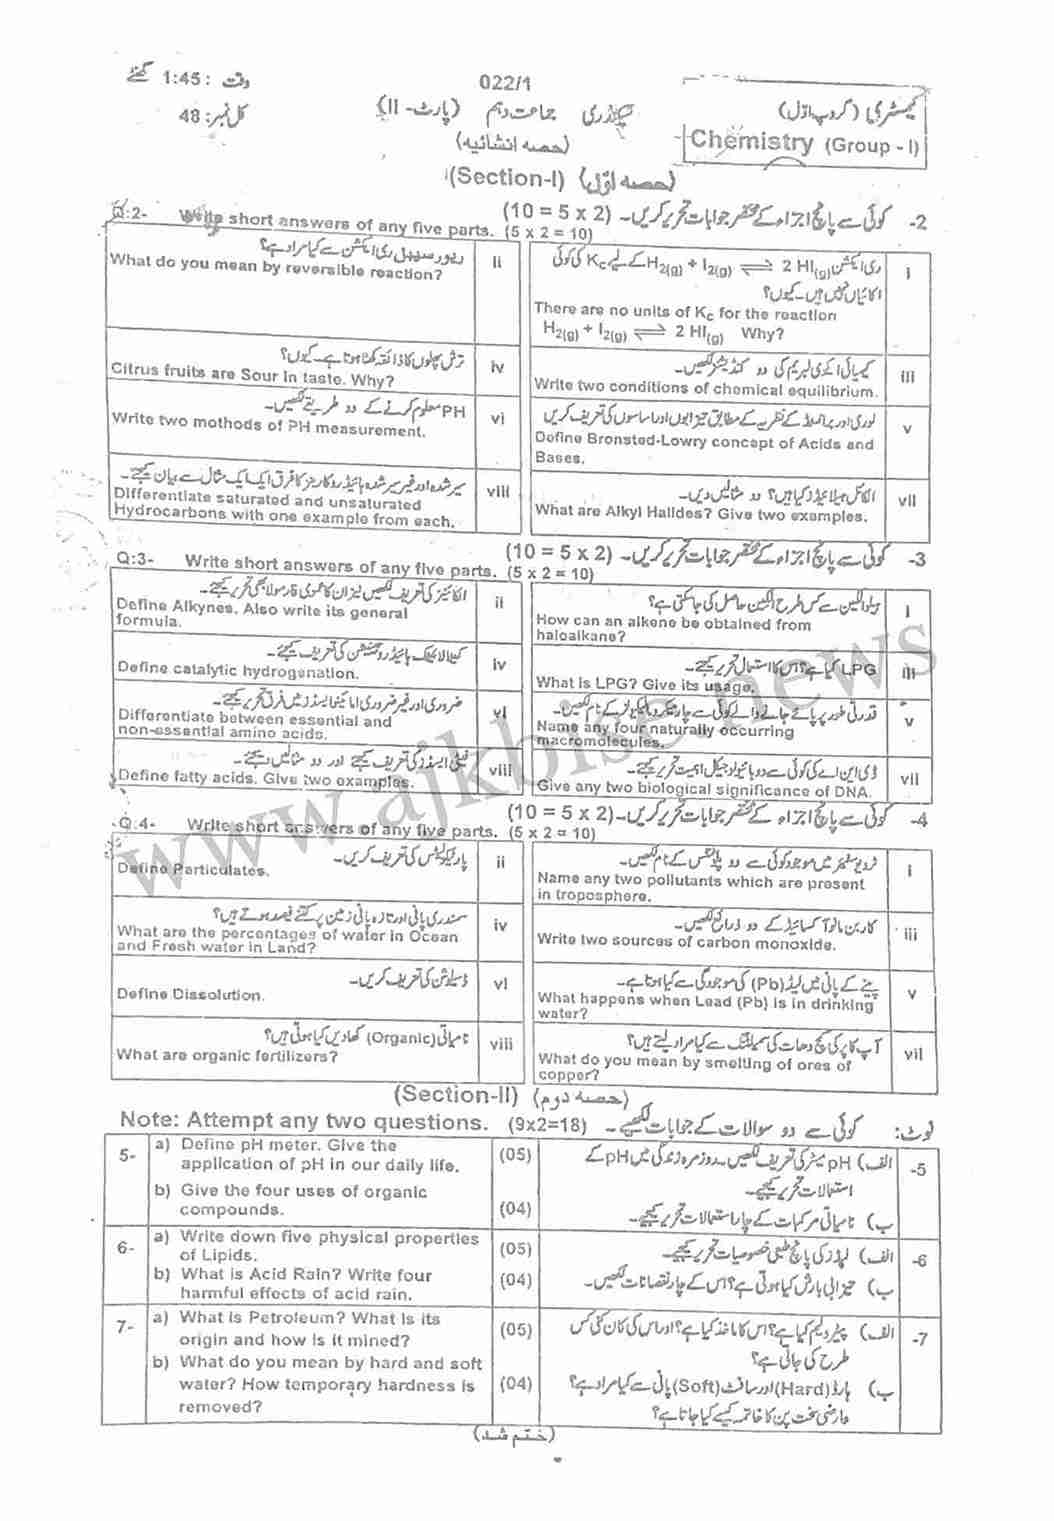 وقت : 1:45 گھنٹے
022/1
کیمسٹری (گروپ اوّل)
کل نمبر: 48
سیکنڈری جماعت دہم (پارٹ - II)
Chemistry (Group - I)
(حصہ انشائیہ)
(Section-I) (حصہ اوّل)
2- کوئی سے پانچ اجزاء کے مختصر جوابات تحریر کریں۔ (10 = 5 x 2)
Q:2- Write short answers of any five parts. (5 x 2 = 10)
ری ایکشن H2(g) + I2(g) ⇌ 2 HI(g) کے لیے Kc کی کوئی
اکائیاں نہیں ہیں۔ کیوں؟
i
There are no units of Kc for the reaction
H2(g) + I2(g) ⇌ 2 HI(g) Why?
ریورسیبل ری ایکشن سے کیا مراد ہے؟
ii
What do you mean by reversible reaction?
کیمیائی ایکوی لبریم کی دو کنڈیشنز لکھیں۔
iii
Write two conditions of chemical equilibrium.
ترش پھلوں کا ذائقہ کھٹا ہوتا ہے۔ کیوں؟
iv
Citrus fruits are Sour In taste. Why?
لوری اور برانسٹڈ کے نظریہ کے مطابق تیزابوں اور اساسوں کی تعریف کریں
v
Define Bronsted-Lowry concept of Acids and
Bases.
PH معلوم کرنے کے دو طریقے لکھیں۔
vi
Write two mothods of PH measurement.
الکائل ہیلائیڈز کیا ہیں؟ دو مثالیں دیں۔
vii
What are Alkyl Halides? Give two examples.
سیر شدہ اور غیر سیر شدہ ہائیڈروکاربنز کا فرق ایک ایک مثال سے بیان کیجئے۔
viii
Differentiate saturated and unsaturated
Hydrocarbons with one example from each.
3- کوئی سے پانچ اجزاء کے مختصر جوابات تحریر کریں۔ (10 = 5 x 2)
Q:3- Write short answers of any five parts. (5 x 2 = 10)
ہیلوالکین سے کس طرح الکین حاصل کی جاسکتی ہے؟
i
How can an alkene be obtained from
haloalkane?
الکائنز کی تعریف لکھیں نیز ان کا عمومی فارمولا بھی تحریر کیجئے۔
ii
Define Alkynes. Also write its general
formula.
LPG کیا ہے؟ اس کا استعمال تحریر کیجئے۔
iii
What is LPG? Give its usage.
کیٹالائیٹک ہائیڈروجنیشن کی تعریف کیجئے۔
iv
Define catalytic hydrogenation.
قدرتی طور پر پائے جانے والے کوئی سے چار میکرومالیکیولز کے نام لکھیں۔
v
Name any four naturally occurring
macromolecules.
ضروری اور غیر ضروری امائینو ایسڈز میں فرق تحریر کیجئے۔
vi
Differentiate between essential and
non-essential amino acids.
ڈی این اے کی کوئی سے دو بائیولوجیکل اہمیت تحریر کیجئے۔
vii
Give any two biological significance of DNA.
فیٹی ایسڈز کی تعریف کیجئے اور دو مثالیں دیجئے۔
viii
Define fatty acids. Give two examples.
www.ajkbise.news
4- کوئی سے پانچ اجزاء کے مختصر جوابات تحریر کریں۔ (10 = 5 x 2)
Q:4- Write short answers of any five parts. (5 x 2 = 10)
ٹروپوسفیئر میں موجود کوئی سے دو پلوٹنٹس کے نام لکھیں۔
i
Name any two pollutants which are present
in troposphere.
پارٹیکولیٹس کی تعریف کریں۔
ii
Define Particulates.
کاربن مانوآکسائیڈ کے دو ذرائع لکھیں۔
iii
Write two sources of carbon monoxide.
سمندری پانی اور تازہ پانی زمین پر کتنے فیصد ہوتے ہیں؟
iv
What are the percentages of water in Ocean
and Fresh water in Land?
پینے کے پانی میں لیڈ (Pb) کی موجودگی سے کیا ہوتا ہے۔
v
What happens when Lead (Pb) is in drinking
water?
ڈسلیوشن کی تعریف کریں۔
vi
Define Dissolution.
آپ کاپر کی کچ دھات کی سمیلٹنگ سے کیا مراد لیتے ہیں؟
vii
What do you mean by smelting of ores of
copper?
نامیاتی (Organic) کھادیں کیا ہوتی ہیں؟
viii
What are organic fertilizers?
(Section-II) (حصہ دوم)
نوٹ: کوئی سے دو سوالات کے جوابات لکھیے۔
Note: Attempt any two questions. (9x2=18)
5- a) Define pH meter. Give the
application of pH in our daily life. (05)
b) Give the four uses of organic
compounds. (04)
5- الف) pH میٹر کی تعریف لکھیں۔ روزمرہ زندگی میں pH کے
استعمالات تحریر کیجئے۔
ب) نامیاتی مرکبات کے چار استعمالات تحریر کیجئے۔
6- a) Write down five physical properties
of Lipids. (05)
b) What is Acid Rain? Write four
harmful effects of acid rain. (04)
6- الف) لپڈز کی پانچ طبعی خصوصیات تحریر کیجئے۔
ب) تیزابی بارش کیا ہوتی ہے؟ اس کے چار نقصانات لکھیں۔
7- a) What is Petroleum? What Is its
origin and how is it mined? (05)
b) What do you mean by hard and soft
water? How temporary hardness is (04)
removed?
7- الف) پیٹرولیم کیا ہے؟ اس کا ماخذ کیا ہے؟ اور اس کی کان کنی کس
طرح کی جاتی ہے؟
ب) ہارڈ (Hard) اور سافٹ (Soft) پانی سے کیا مراد ہے؟
عارضی سخت پن کا خاتمہ کیسے کیا جاتا ہے؟
(ختم شد)